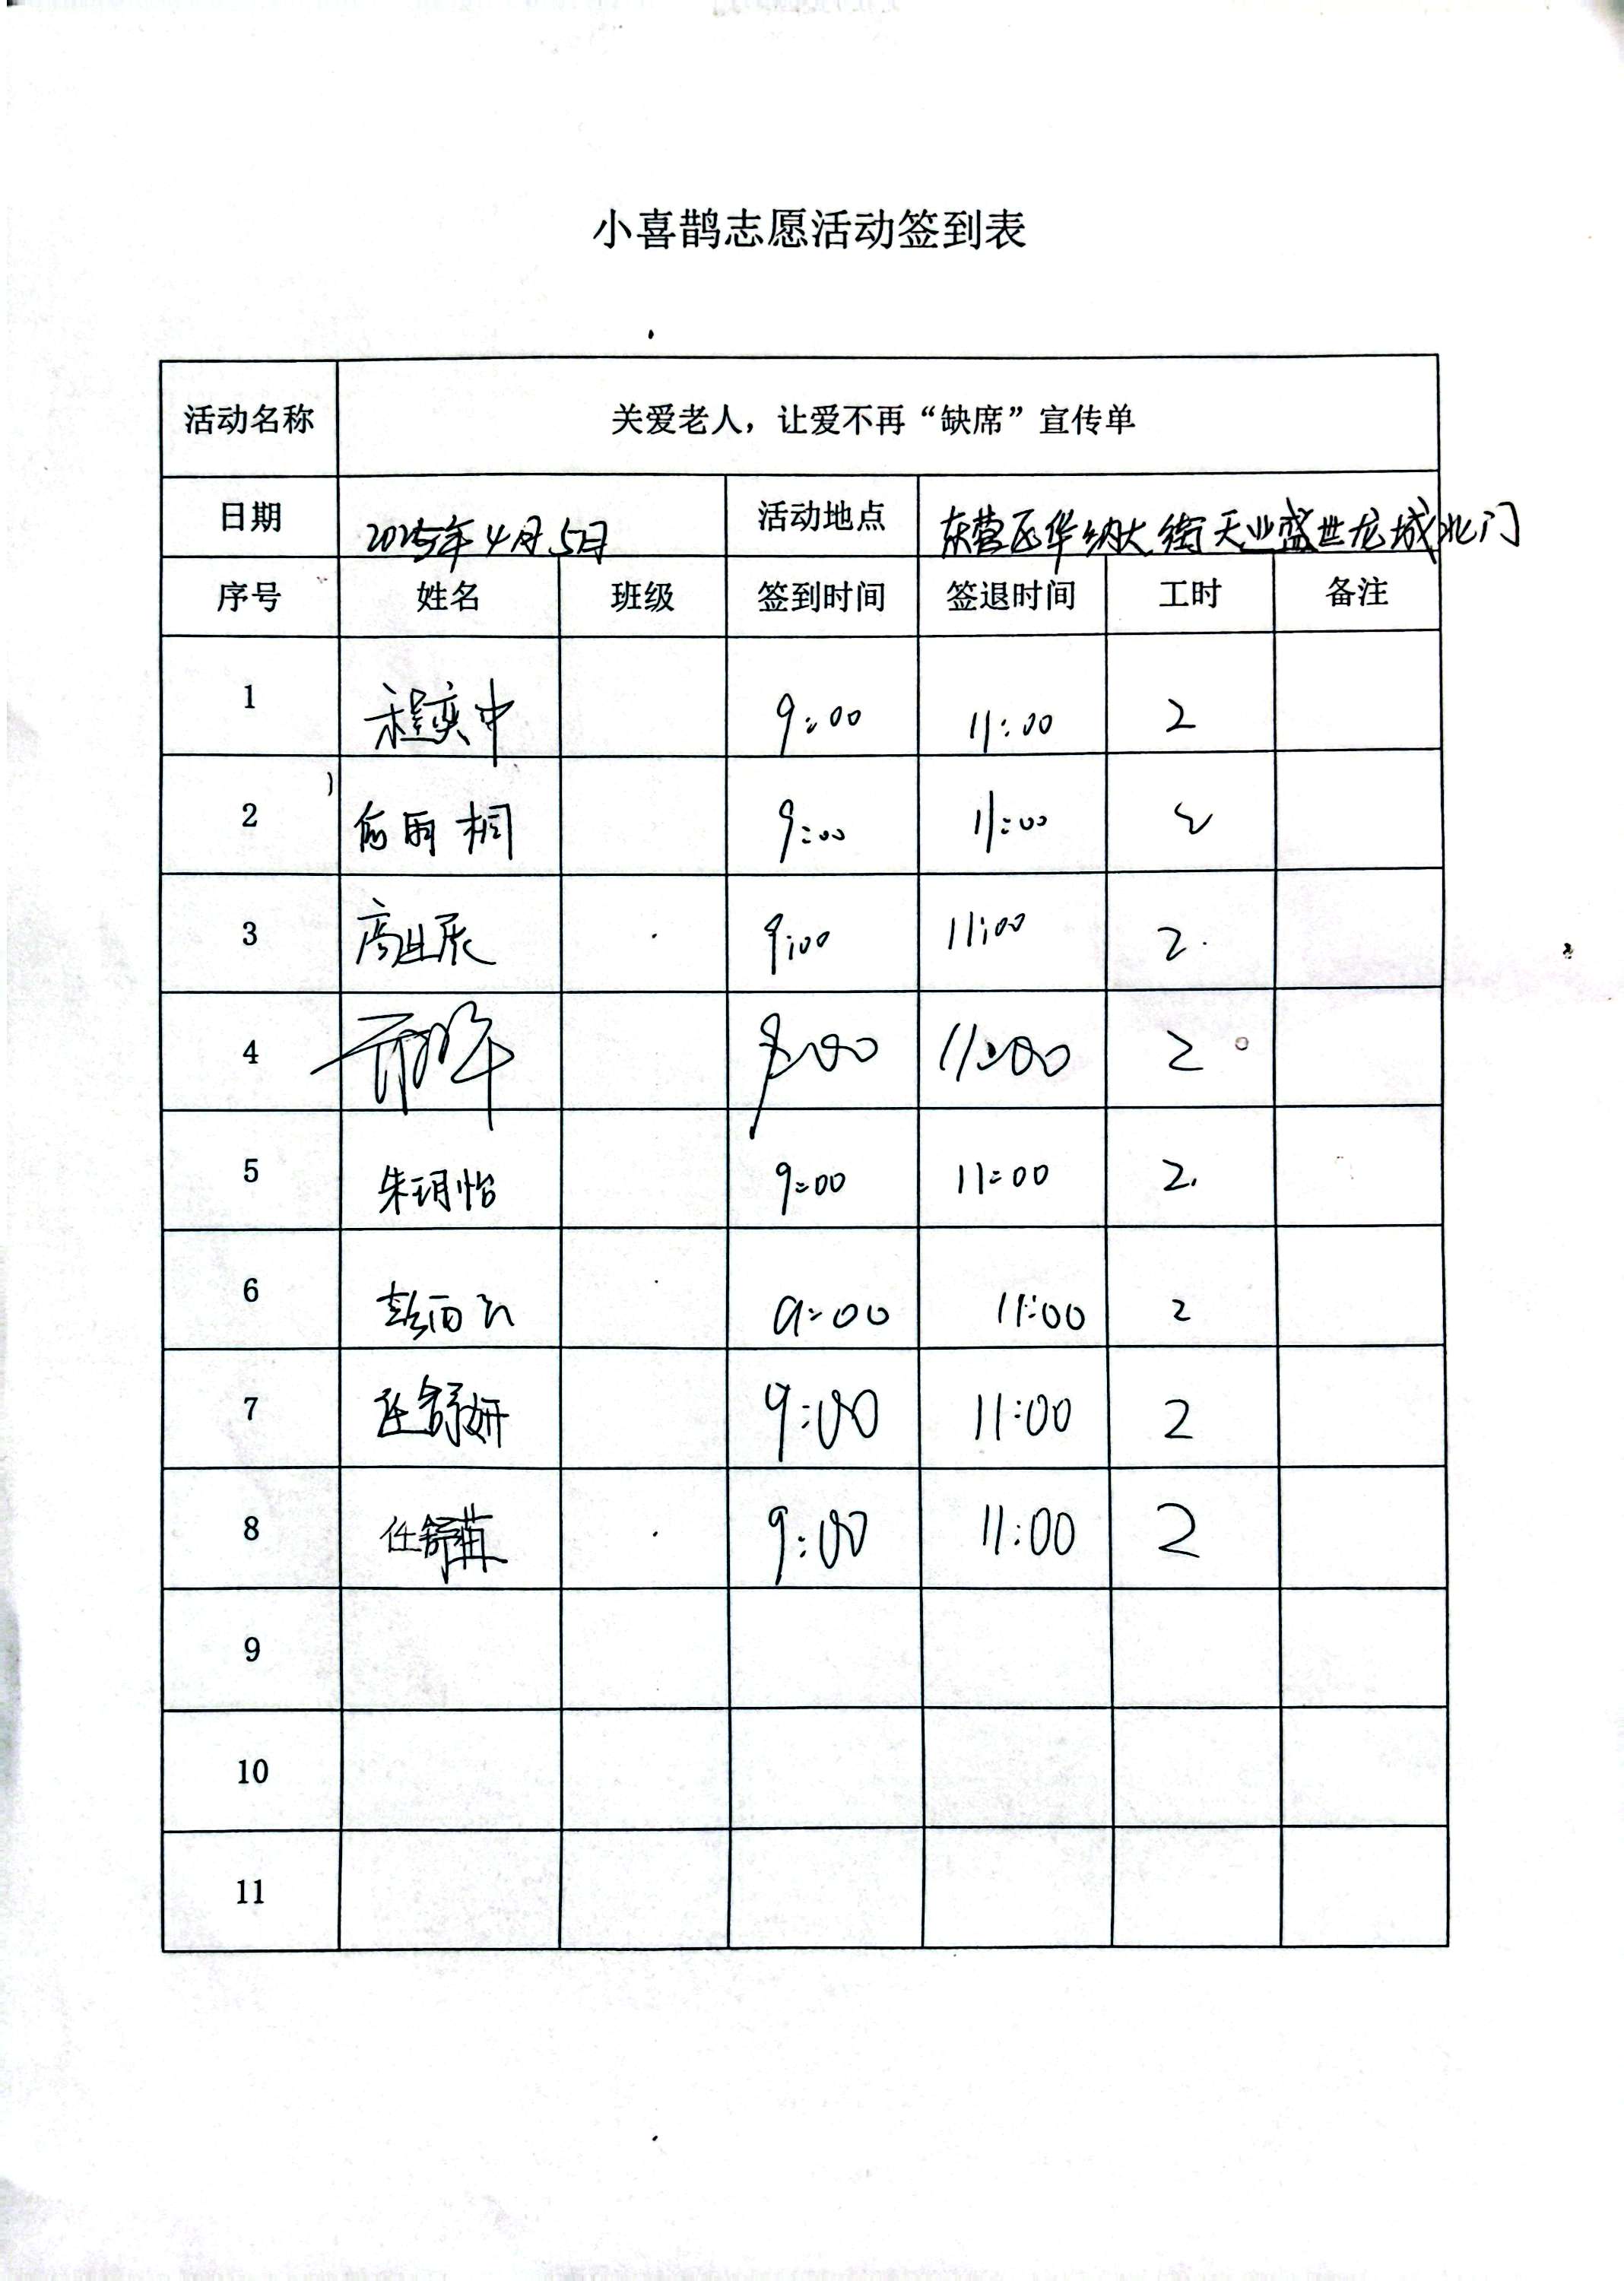 小喜鹊志愿活动签到表
活动名称 关爱老人，让爱不再“缺席”宣传单
日期 2025年4月5日 活动地点 东营区华纳大街天业盛世龙城北门
序号 姓名 班级 签到时间 签退时间 工时 备注
1 程奕中 9:00 11:00 2
2 雨桐 9:00 11:00 2
3 9:00 11:00 2
4 9:00 11:00 2
5 朱玥怡 9:00 11:00 2
6 彭 9:00 11:00 2
7 任舒妍 9:00 11:00 2
8 任舒苒 9:00 11:00 2
9
10
11